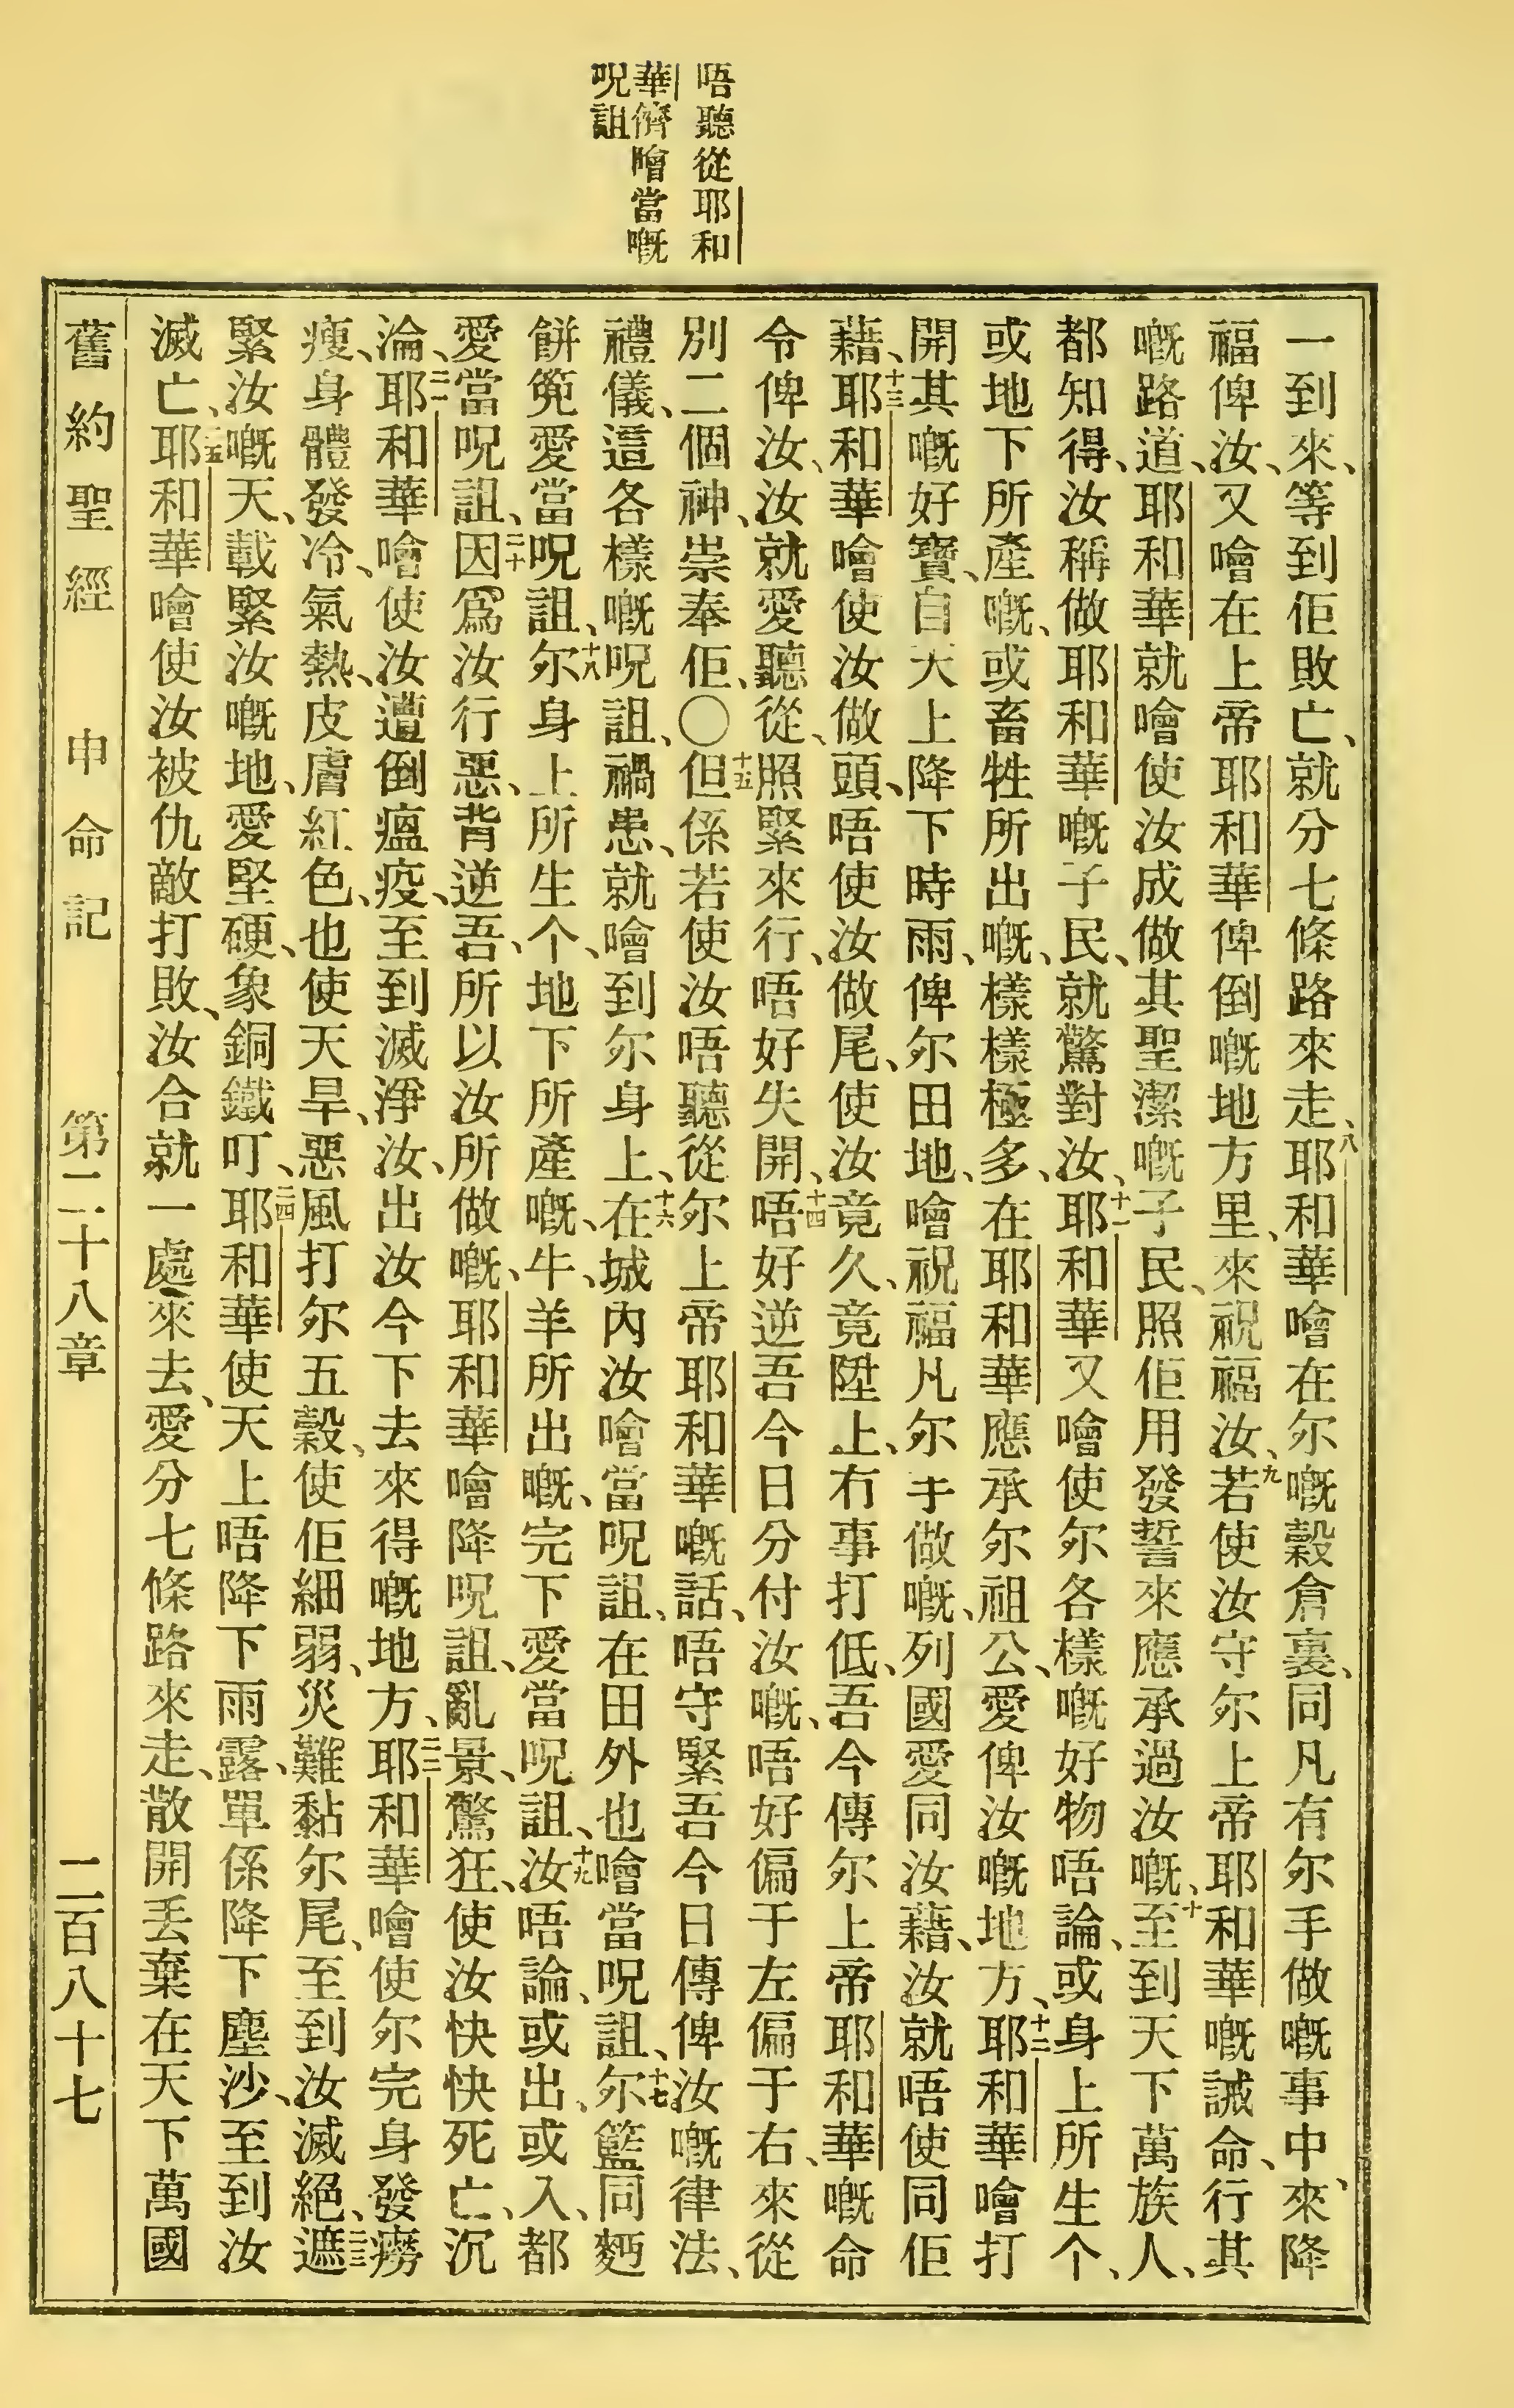 唔聽從耶和
華儕瞺當嘅
呪詛
一到來、等到佢敗亡、就分七條路來走、八耶和華噲在尔嘅穀倉裏、同凡有尔手做嘅事中、來降
福俾汝、又噲在上帝耶和華俾倒嘅地方里、來祝福汝、九若使汝守尔上帝耶和華嘅誡命、行其
嘅路道、耶和華就噲使汝成做其聖潔嘅子民、照佢用發誓來應承過汝嘅、十至到天下萬族人、
都知得、汝稱做耶和華嘅子民、就驚對汝、十一耶和華又噲使尔各樣嘅好物唔論、或身上所生个、
或地下所產嘅、或畜牲所出嘅、樣樣極多、在耶和華應承尔祖公、愛俾汝嘅地方、十二耶和華噲打
開其嘅好寶、自天上降下時雨、俾尔田地、噲祝福凡尔手做嘅、列國愛同汝藉、汝就唔使同佢
藉、十三耶和華噲使汝做頭、唔使汝做尾、使汝竟久、竟陞上、冇事打低、吾今傳尔上帝耶和華嘅命
令俾汝、汝就愛聽從、照緊來行、唔好失開、十四唔好逆吾今日分付汝嘅、唔好偏于左偏于右、來從
別二個神、崇奉佢、〇十五但係若使汝唔聽從尔上帝耶和華嘅話、唔守緊吾今日傳俾汝嘅律法、
禮儀、這各樣嘅呪詛、禍患、就噲到尔身上、十六在城內汝噲當呪詛、在田外也噲當呪詛、十七尔籃同麪
餅篼愛當呪詛、十八尔身上所生个、地下所產嘅、牛、羊所出嘅、完下愛當呪詛、十九汝唔論、或出、或入、都
愛當呪詛、二十因爲汝行惡、背逆吾、所以汝所做嘅、耶和華噲降呪詛、亂景、驚狂、使汝快快死亡、沉
淪、二一耶和華噲使汝遭倒瘟疫、至到滅淨汝、出汝今下去來得嘅地方、二二耶和華噲使尔完身發癆
瘦、身體發冷、氣熱、皮膚紅色、也使天旱、惡風打尔五穀、使佢細弱、災難黏尔尾、至到汝滅絕、二三遮
緊汝嘅天、載緊汝嘅地、愛堅硬、象銅鐵叮、二四耶和華使天上唔降下雨露、單係降下塵沙、至到汝
滅亡、二五耶和華噲使汝被仇敵打敗、汝合就一處來去、愛分七條路來走、散開丢棄在天下萬國
舊約聖經 申命記 第二十八章 二百八十七